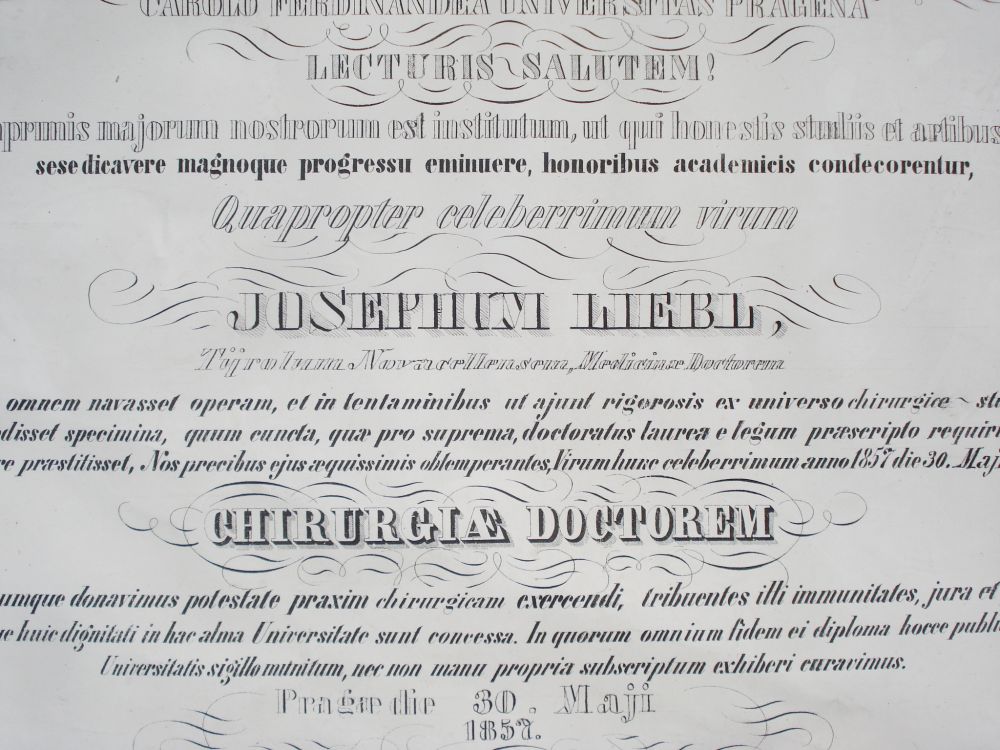 CAROLO FERDINANDEA UNIVERSITAS PRAGENA
LECTURIS SALUTEM!
primis majorum nostrorum est institutum, ut qui honestis studiis et artibus
sese dicavere magnoque progressu eminuere, honoribus academicis condecorentur,
Quapropter celeberrimum virum
JOSEPHUM LIEBL,
Tÿrolum Novacellensem, Medicinæ Doctorem
omnem navasset operam, et in tentaminibus ut ajunt rigorosis ex universo chirurgiæ
disset specimina, quum cuncta, quæ pro suprema, doctoratus laurea e legum præscripto requir
præstitisset, Nos precibus ejus æquissimis obtemperantes, Virum hunc celeberrimum anno 1857 die 30. Maj
CHIRURGIÆ DOCTOREM
umque donavimus potestate praxim chirurgicam exercendi, tribuentes illi immunitates, jura et
huic dignitati in hac alma Universitate sunt concessa. In quorum omnium fidem ei diploma hocce publ
Universitatis sigillo munitum, nec non manu propria subscriptum exhiberi curavimus.
Pragæ die 30. Maji
1857.